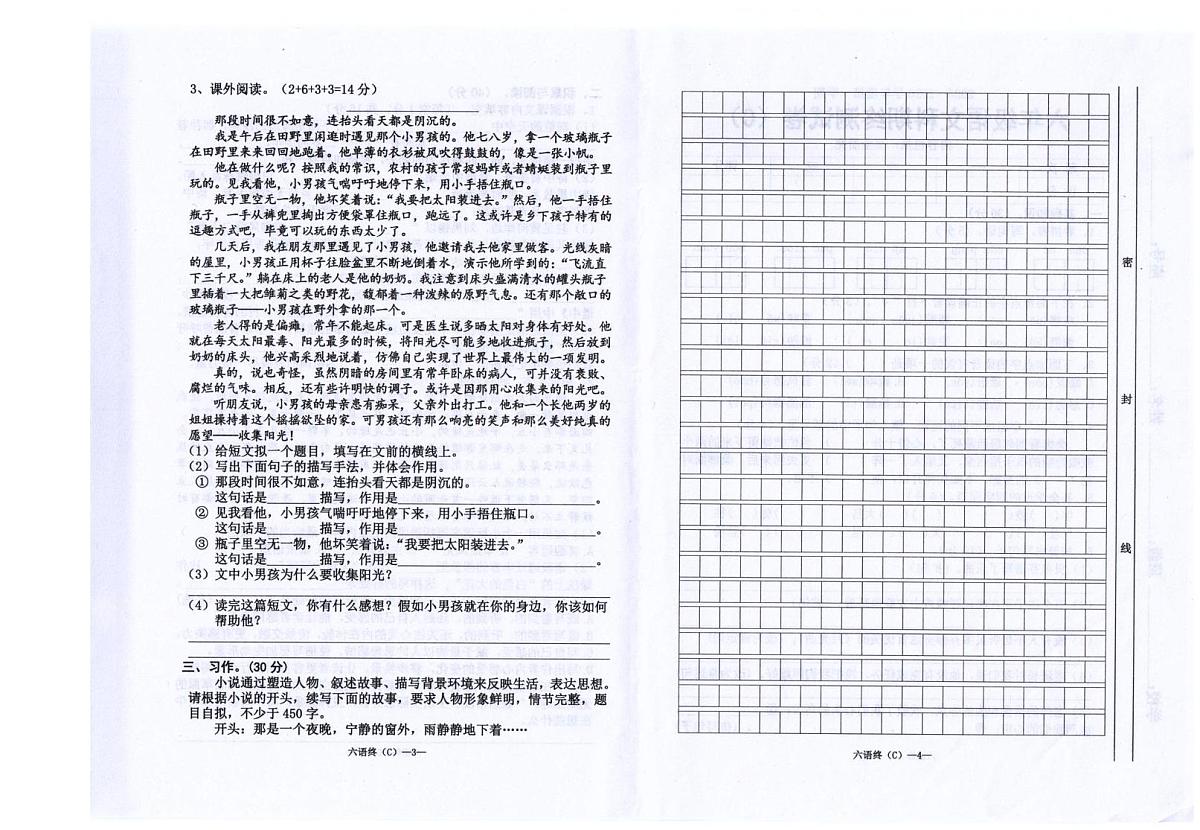 3、课外阅读。（2+6+3+3=14 分）
那段时间很不如意，连抬头看天都是阴沉的。
我是午后在田野里闲逛时遇见那个小男孩的。他七八岁，拿一个玻璃瓶子
在田野里来来回回地跑着。他单薄的衣衫被风吹得鼓鼓的，像是一张小帆。
他在做什么呢？按照我的常识，农村的孩子常捉蚂蚱或者蜻蜓装到瓶子里
玩的。见我看他，小男孩气喘吁吁地停下来，用小手捂住瓶口。
瓶子里空无一物，他坏笑着说：“我要把太阳装进去。”然后，他一手捂住
瓶子，一手从裤兜里掏出方便袋罩住瓶口，跑远了。这或许是乡下孩子特有的
逗趣方式吧，毕竟可以玩的东西太少了。
几天后，我在朋友那里遇见了小男孩，他邀请我去他家里做客。光线灰暗
的屋里，小男孩正用杯子往脸盆里不断地倒着水，演示他所学到的：“飞流直
下三千尺。”躺在床上的老人是他的奶奶。我注意到床头盛满清水的罐头瓶子
里插着一大把雏菊之类的野花，馥郁着一种泼辣的原野气息。还有那个敞口的
玻璃瓶子——小男孩在野外拿的那一个。
老人得的是偏瘫，常年不能起床。可是医生说多晒太阳对身体有好处。他
就在每天太阳最毒、阳光最多的时候，将阳光尽可能多地收进瓶子，然后放到
奶奶的床头，他兴高采烈地说着，仿佛自己实现了世界上最伟大的一项发明。
真的，说也奇怪，虽然阴暗的房间里有常年卧床的病人，可并没有衰败、
腐烂的气味。相反，还有些许明快的调子。或许是因那用心收集来的阳光吧。
听朋友说，小男孩的母亲患有痴呆，父亲外出打工。他和一个长他两岁的
姐姐操持着这个摇摇欲坠的家。可男孩还有那么响亮的笑声和那么美好纯真的
愿望——收集阳光！
（1）给短文拟一个题目，填写在文前的横线上。
（2）写出下面句子的描写手法，并体会作用。
① 那段时间很不如意，连抬头看天都是阴沉的。
这句话是______描写，作用是______________________。
② 见我看他，小男孩气喘吁吁地停下来，用小手捂住瓶口。
这句话是______描写，作用是______________________。
③ 瓶子里空无一物，他坏笑着说：“我要把太阳装进去。”
这句话是______描写，作用是______________________。
（3）文中小男孩为什么要收集阳光？
（4）读完这篇短文，你有什么感想？假如小男孩就在你的身边，你该如何
帮助他？
三、习作。（30 分）
小说通过塑造人物、叙述故事、描写背景环境来反映生活，表达思想。
请根据小说的开头，续写下面的故事，要求人物形象鲜明，情节完整，题
目自拟，不少于 450 字。
开头：那是一个夜晚，宁静的窗外，雨静静地下着……
六语终（C）—3—
六语终（C）—4—
密
封
线